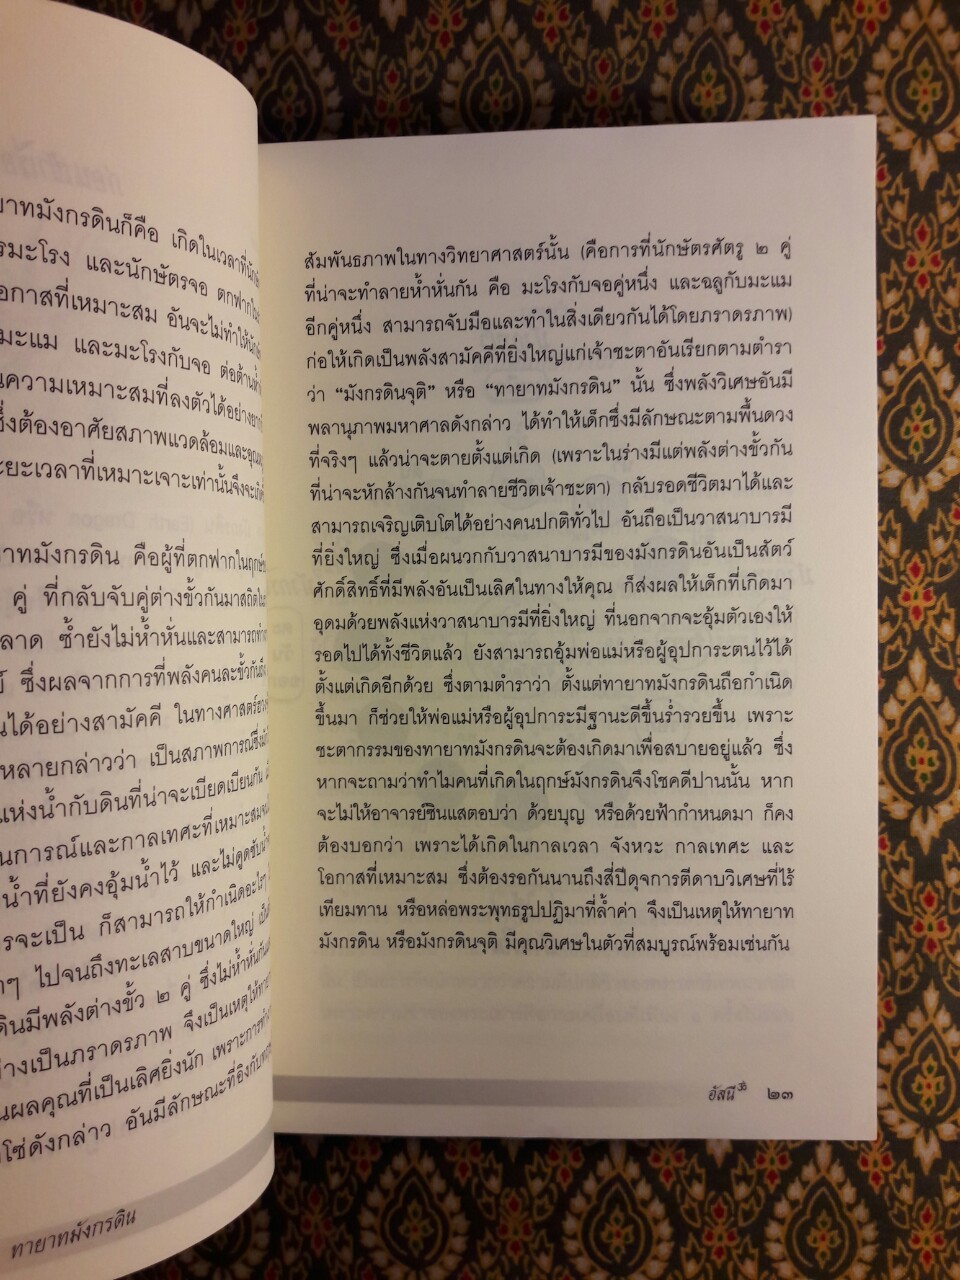 ยาทมังกรดินก็คือ เกิดในเวลาที่นักษั
รมะโรง และนักษัตรจอ ตกฟากใน
อกาสที่เหมาะสม อันจะไม่ทำให้
มะแม และมะโรงกับจอ ต่อต้าน
นความเหมาะสมที่ลงตัวได้อย่าง
ซึ่งต้องอาศัยสภาพแวดล้อมและ
ะยะเวลาที่เหมาะเจาะเท่านั้นจึงจะ
าทมังกรดิน คือผู้ที่ตกฟากในฤกษ์
คู่ ที่กลับจับคู่ต่างขั้วกันมาสถิตใน
ลาด ซ้ำยังไม่ห้ำหั่นและสามารถ
ย์ ซึ่งผลจากการที่พลังคนละขั้วกัน
นได้อย่างสามัคคี ในทางศาสตร์
หลายกล่าวว่า เป็นสภาพการณ์ซึ่ง
แห่งน้ำกับดินที่น่าจะเบียดเบียนกัน
นการณ์และกาลเทศะที่เหมาะสม
น้ำที่ยังคงอุ้มน้ำไว้ และไม่ดูดซับ
รจะเป็น ก็สามารถให้กำเนิดอะไรๆ
าๆ ไปจนถึงทะเลสาบขนาดใหญ่
ดินมีพลังต่างขั้ว ๒ คู่ ซึ่งไม่ห้ำหั่นกัน
างเป็นภราดรภาพ จึงเป็นเหตุให้
นผลคุณที่เป็นเลิศยิ่งนัก เพราะการ
โซ่ดังกล่าว อันมีลักษณะที่อิงกับ
ทายาทมังกรดิน
สัมพันธภาพในทางวิทยาศาสตร์นั้น (คือการที่นักษัตรศัตรู ๒ คู่
ที่น่าจะทำลายห้ำหั่นกัน คือ มะโรงกับจอคู่หนึ่ง และฉลูกับมะแม
อีกคู่หนึ่ง สามารถจับมือและทำในสิ่งเดียวกันได้โดยภราดรภาพ)
ก่อให้เกิดเป็นพลังสามัคคีที่ยิ่งใหญ่แก่เจ้าชะตาอันเรียกตามตำรา
ว่า “มังกรดินจุติ” หรือ “ทายาทมังกรดิน” นั้น ซึ่งพลังวิเศษอันมี
พลานุภาพมหาศาลดังกล่าว ได้ทำให้เด็กซึ่งมีลักษณะตามพื้นดวง
ที่จริงๆ แล้วน่าจะตายตั้งแต่เกิด (เพราะในร่างมีแต่พลังต่างขั้วกัน
ที่น่าจะหักล้างกันจนทำลายชีวิตเจ้าชะตา) กลับรอดชีวิตมาได้และ
สามารถเจริญเติบโตได้อย่างคนปกติทั่วไป อันถือเป็นวาสนาบารมี
ที่ยิ่งใหญ่ ซึ่งเมื่อผนวกกับวาสนาบารมีของมังกรดินอันเป็นสัตว์
ศักดิ์สิทธิ์ที่มีพลังอันเป็นเลิศในทางให้คุณ ก็ส่งผลให้เด็กที่เกิดมา
อุดมด้วยพลังแห่งวาสนาบารมีที่ยิ่งใหญ่ ที่นอกจากจะอุ้มตัวเองให้
รอดไปได้ทั้งชีวิตแล้ว ยังสามารถอุ้มพ่อแม่หรือผู้อุปการะตนไว้ได้
ตั้งแต่เกิดอีกด้วย ซึ่งตามตำราว่า ตั้งแต่ทายาทมังกรดินถือกำเนิด
ขึ้นมา ก็ช่วยให้พ่อแม่หรือผู้อุปการะมีฐานะดีขึ้นร่ำรวยขึ้น เพราะ
ชะตากรรมของทายาทมังกรดินจะต้องเกิดมาเพื่อสบายอยู่แล้ว ซึ่ง
หากจะถามว่าทำไมคนที่เกิดในฤกษ์มังกรดินจึงโชคดีปานนั้น หาก
จะไม่ให้อาจารย์ซินแสตอบว่า ด้วยบุญ หรือด้วยฟ้ากำหนดมา ก็คง
ต้องบอกว่า เพราะได้เกิดในกาลเวลา จังหวะ กาลเทศะ และ
โอกาสที่เหมาะสม ซึ่งต้องรอกันนานถึงสี่ปีดุจการตีดาบวิเศษที่ไร้
เทียมทาน หรือหล่อพระพุทธรูปปฏิมาที่ล้ำค่า จึงเป็นเหตุให้ทายาท
มังกรดิน หรือมังกรดินจุติ มีคุณวิเศษในตัวที่สมบูรณ์พร้อมเช่นกัน
อัสนี ๒๓